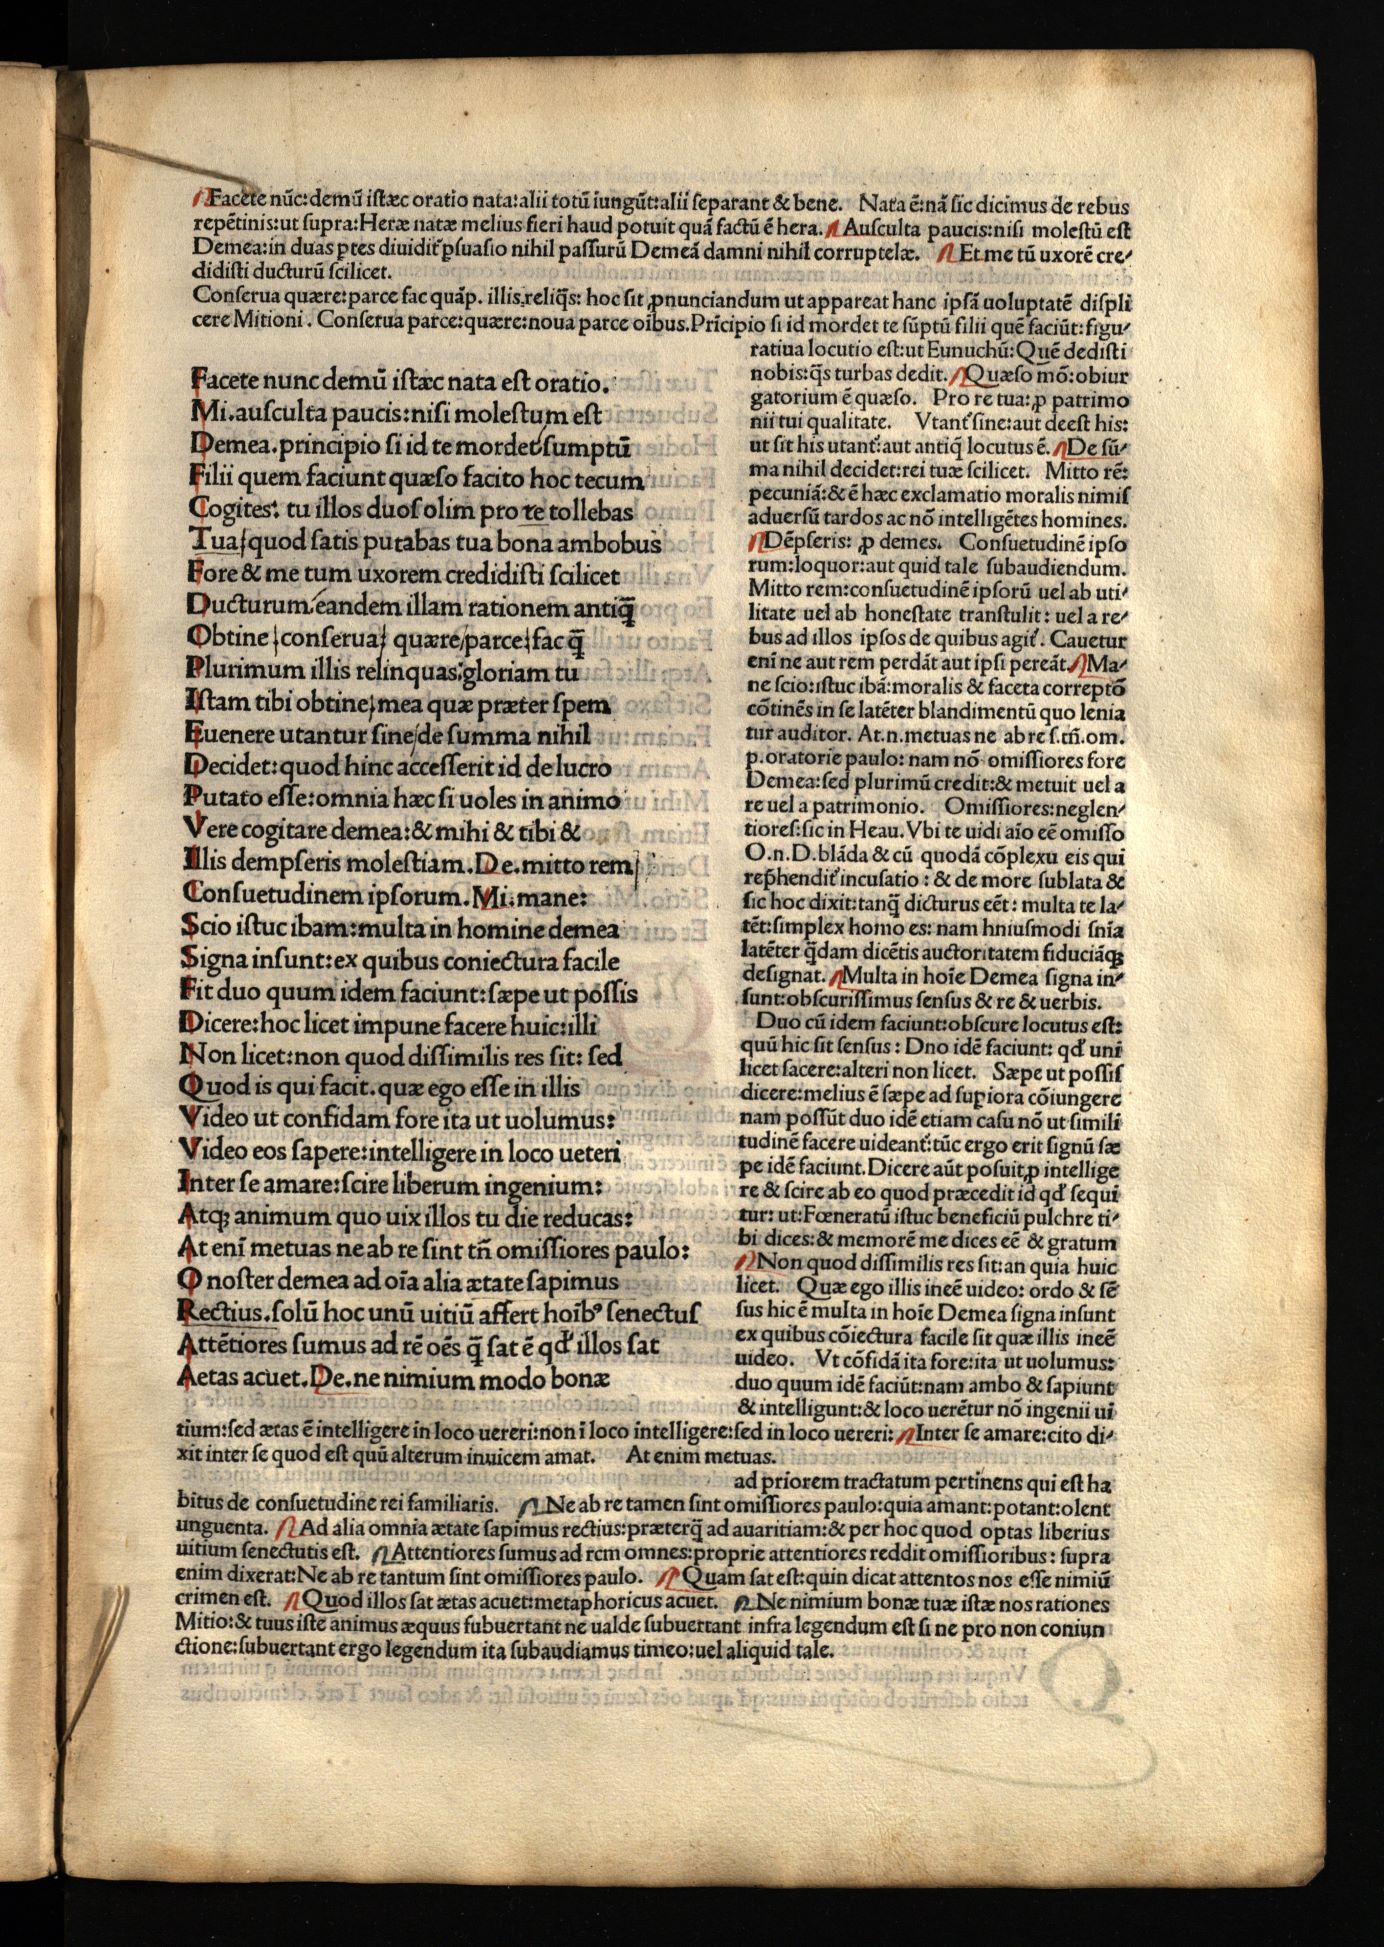 Facete nūc:demū istæc oratio nata:alii totū iungūt:alii separant & bene. Nata ē:nā sic dicimus de rebus
repētinis:ut supra:Heræ natæ melius fieri haud potuit quā factū ē hera. Ausculta paucis:nisi molestū est
Demea:in duas ꝑtes diuidit᷑ ꝑsuasio nihil passurū Demeā damni nihil corruptelæ. Et me tū uxorē cre-
didisti ducturū scilicet.
Conserua quære:parce fac quāp. illis.reliq̄s: hoc sit ꝓnunciandum ut appareat hanc ipsā uoluptatē displi
cere Mitioni. Conserua parce:quære:noua parce oībus.Prīcipio si id mordet te sūptū filii quē faciūt:figu-
ratiua locutio est:ut Eunuchū:Quē dedisti
nobis:q̄s turbas dedit. Quæso mō:obiur
gatorium ē quæso. Pro re tua:ꝓ patrimo
nii tui qualitate. Vtant᷑ sine:aut deest his:
ut sit his utant᷑:aut antiq̄ locutus ē. De sū-
ma nihil decidet:rei tuæ scilicet. Mitto rē:
pecuniā:& ē hæc exclamatio moralis nimis
aduersū tardos ac nō intelligētes homines.
Dēpseris: ꝓ demes. Consuetudinē ipso
rum:loquor:aut quid tale subaudiendum.
Mitto rem:consuetudinē ipsorū uel ab uti-
litate uel ab honestate transtulit: uel a re-
bus ad illos ipsos de quibus agit᷑. Cauetur
enī ne aut rem perdāt aut ipsi pereāt. Ma-
ne scio:istuc ibā:moralis & faceta correptō
cōtinēs in se latēter blandimentū quo lenia
tur auditor. At.n.metuas ne ab re s.tn̄.om.
p.oratorie paulo: nam nō omissiores fore
Demea:sed plurimū credit:& metuit uel a
re uel a patrimonio. Omissiores:neglen-
tiores:sic in Heau.Vbi te uidi aīo eē omisso
O.n.D.blāda & cū quodā cōplexu eis qui
rep̄hendit᷑ incusatio: & de more sublata &
sic hoc dixit:tanq̄ dicturus eēt: multa te la-
tēt:simplex homo es: nam hniusmodi snīa
latēter q̄dam dicētis auctoritatem fiduciāqꝫ
designat. Multa in hoīe Demea signa in-
sunt:obscurissimus sensus & re & uerbis.
Duo cū idem faciunt:obscure locutus est:
quū hic sit sensus: Dno idē faciunt: qd̄ uni
licet facere:alteri non licet. Sæpe ut possis
dicere:melius ē sæpe ad suꝑiora cōiungere
nam possūt duo idē etiam casu nō ut simili
tudinē facere uideant᷑:tūc ergo erit signū sæ
pe idē faciunt.Dicere aūt posuit ꝓ intellige
re & scire ab eo quod præcedit id qd̄ sequi
tur: ut:Fœneratū istuc beneficiū pulchre ti-
bi dices:& memorē me dices eē & gratum
Non quod dissimilis res sit:an quia huic
licet. Quæ ego illis ineē uideo: ordo & sē
sus hic ē multa in hoīe Demea signa insunt
ex quibus cōiectura facile sit quæ illis ineē
uideo. Vt cōfidā ita fore:ita ut uolumus:
duo quum idē faciūt:nam ambo & sapiunt
& intelligunt:& loco uerētur nō ingenii ui
Facete nunc demū istæc nata est oratio.
Mi.ausculta paucis:nisi molestum est
Demea.principio si id te mordet sumptū
Filii quem faciunt quæso facito hoc tecum
Cogites: tu illos duos olim pro re tollebas
Tua/quod satis putabas tua bona ambobus
Fore & me tum uxorem credidisti scilicet
Ducturum:eandem illam rationem antiq̄
Obtine/conserua/ quære/parce/fac q̄
Plurimum illis relinquas:gloriam tu
Istam tibi obtine/mea quæ præter spem
Euenere utantur sine/de summa nihil
Decidet:quod hinc accesserit id de lucro
Putato esse:omnia hæc si uoles in animo
Vere cogitare demea:& mihi & tibi &
Illis dempseris molestiam.De.mitto rem/
Consuetudinem ipsorum.Mi.mane:
Scio istuc ibam:multa in homine demea
Signa insunt:ex quibus coniectura facile
Fit duo quum idem faciunt:sæpe ut possis
Dicere:hoc licet impune facere huic:illi
Non licet:non quod dissimilis res sit: sed
Quod is qui facit.quæ ego esse in illis
Video ut confidam fore ita ut uolumus:
Video eos sapere:intelligere in loco ueteri
Inter se amare:scire liberum ingenium:
Atqꝫ animum quo uix illos tu die reducas:
At enī metuas ne ab re sint tn̄ omissiores paulo:
O noster demea ad oīa alia ætate sapimus
Rectius.solū hoc unū uitiū affert hoībꝰ senectus
Attētiores sumus ad rē oēs q̄ sat ē qd̄ illos sat
Aetas acuet.De.ne nimium modo bonæ
tium:sed ætas ē intelligere in loco uereri:non ī loco intelligere:sed in loco uereri: Inter se amare:cito di-
xit inter se quod est quū alterum inuicem amat. At enim metuas.
ad priorem tractatum pertinens qui est ha
bitus de consuetudine rei familiaris. Ne ab re tamen sint omissiores paulo:quia amant:potant:olent
unguenta. Ad alia omnia ætate sapimus rectius:præterq̄ ad auaritiam:& per hoc quod optas liberius
uitium senectutis est. Attentiores sumus ad rem omnes:proprie attentiores reddit omissioribus: supra
enim dixerat:Ne ab re tantum sint omissiores paulo. Quam sat est:quin dicat attentos nos esse nimiū
crimen est. Quod illos sat ætas acuet:metaphoricus acuet. Ne nimium bonæ tuæ istæ nos rationes
Mitio:& tuus iste animus æquus subuertant ne ualde subuertant infra legendum est si ne pro non coniun
ctione:subuertant ergo legendum ita subaudiamus timeo:uel aliquid tale.